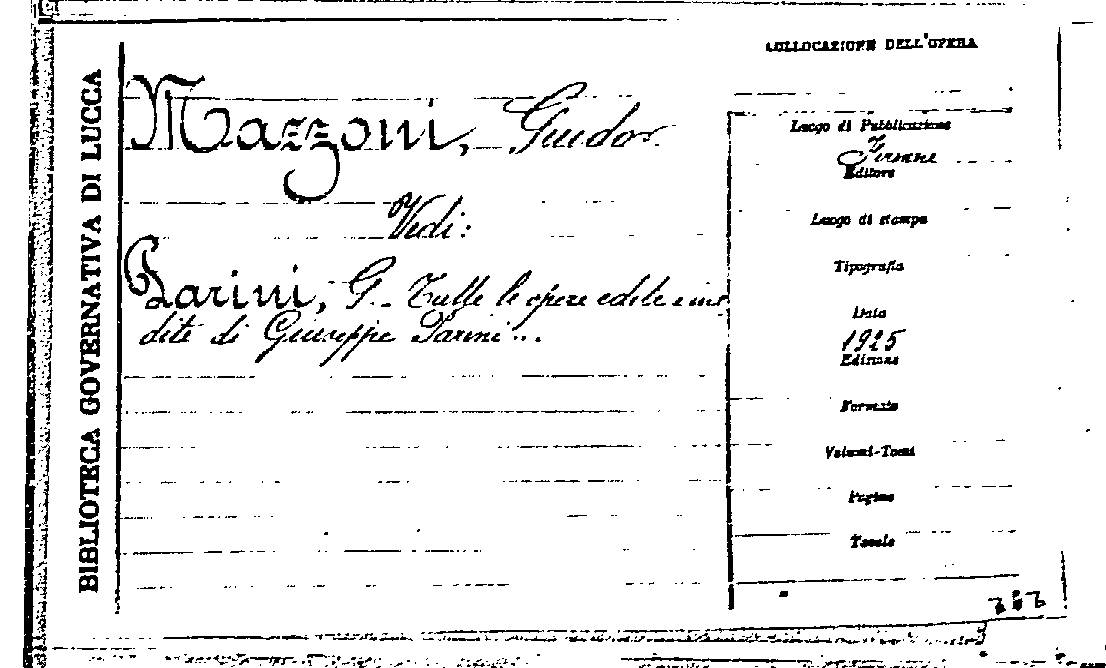 BIBLIOTECA GOVERNATIVA DI LUCCA
COLLOCAZIONE DELL'OPERA
Mazzoni, Guido.
Vedi:
Parini, G. - Tutte le opere edite e ine
dite di Giuseppe Parini...
Luogo di Pubblicazione
Firenze
Editore
Luogo di stampa
Tipografia
Data
1925
Edizione
Formato
Volumi-Tomi
Pagine
Tavole